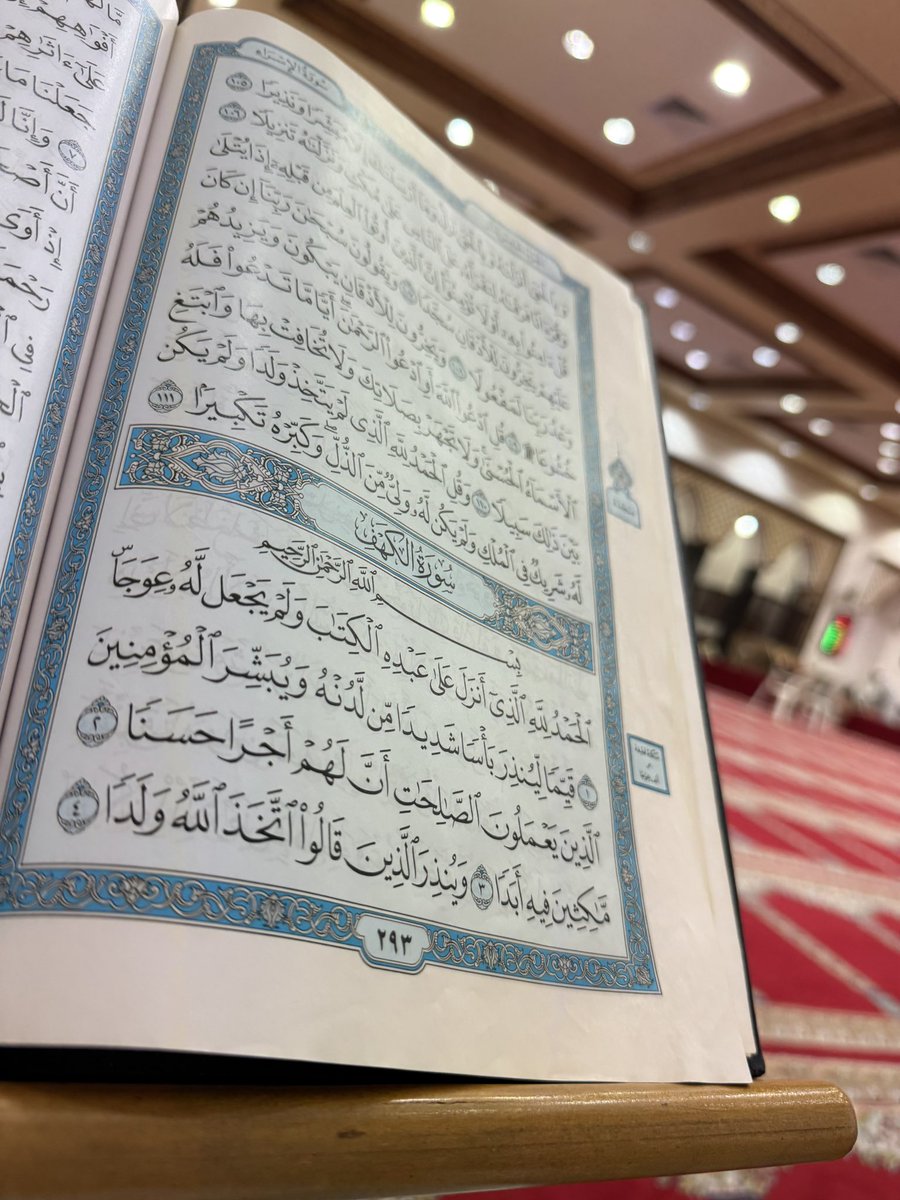 سُورَةُ الإِسْرَاءِ
مُبَشِّرًا وَنَذِيرًا ١٠٥
عَلَى ٱلنَّاسِ عَلَىٰ مُكْثٍ وَنَزَّلْنَٰهُ تَنزِيلًا ١٠٦
قُلْ ءَامِنُوا۟ بِهِۦٓ أَوْ لَا تُؤْمِنُوٓا۟ إِنَّ ٱلَّذِينَ أُوتُوا۟ ٱلْعِلْمَ مِن قَبْلِهِۦٓ إِذَا يُتْلَىٰ
عَلَيْهِمْ يَخِرُّونَ لِلْأَذْقَانِ سُجَّدًا ١٠٧ وَيَقُولُونَ سُبْحَٰنَ رَبِّنَآ إِن كَانَ
وَعْدُ رَبِّنَا لَمَفْعُولًا ١٠٨ وَيَخِرُّونَ لِلْأَذْقَانِ يَبْكُونَ وَيَزِيدُهُمْ
خُشُوعًا ۩ ١٠٩ قُلِ ٱدْعُوا۟ ٱللَّهَ أَوِ ٱدْعُوا۟ ٱلرَّحْمَٰنَ أَيًّا مَّا تَدْعُوا۟ فَلَهُ
ٱلْأَسْمَآءُ ٱلْحُسْنَىٰ وَلَا تَجْهَرْ بِصَلَاتِكَ وَلَا تُخَافِتْ بِهَا وَٱبْتَغِ
بَيْنَ ذَٰلِكَ سَبِيلًا ١١٠ وَقُلِ ٱلْحَمْدُ لِلَّهِ ٱلَّذِى لَمْ يَتَّخِذْ وَلَدًا وَلَمْ يَكُن
لَّهُۥ شَرِيكٌ فِى ٱلْمُلْكِ وَلَمْ يَكُن لَّهُۥ وَلِىٌّ مِّنَ ٱلذُّلِّ وَكَبِّرْهُ تَكْبِيرًۢا ١١١
سُورَةُ الكَهْفِ
بِسْمِ ٱللَّهِ ٱلرَّحْمَٰنِ ٱلرَّحِيمِ
ٱلْحَمْدُ لِلَّهِ ٱلَّذِىٓ أَنزَلَ عَلَىٰ عَبْدِهِ ٱلْكِتَٰبَ وَلَمْ يَجْعَل لَّهُۥ عِوَجَاۜ
١ قَيِّمًا لِّيُنذِرَ بَأْسًا شَدِيدًا مِّن لَّدُنْهُ وَيُبَشِّرَ ٱلْمُؤْمِنِينَ
ٱلَّذِينَ يَعْمَلُونَ ٱلصَّٰلِحَٰتِ أَنَّ لَهُمْ أَجْرًا حَسَنًا ٢
مَّٰكِثِينَ فِيهِ أَبَدًا ٣ وَيُنذِرَ ٱلَّذِينَ قَالُوا۟ ٱتَّخَذَ ٱللَّهُ وَلَدًا ٤
٢٩٣